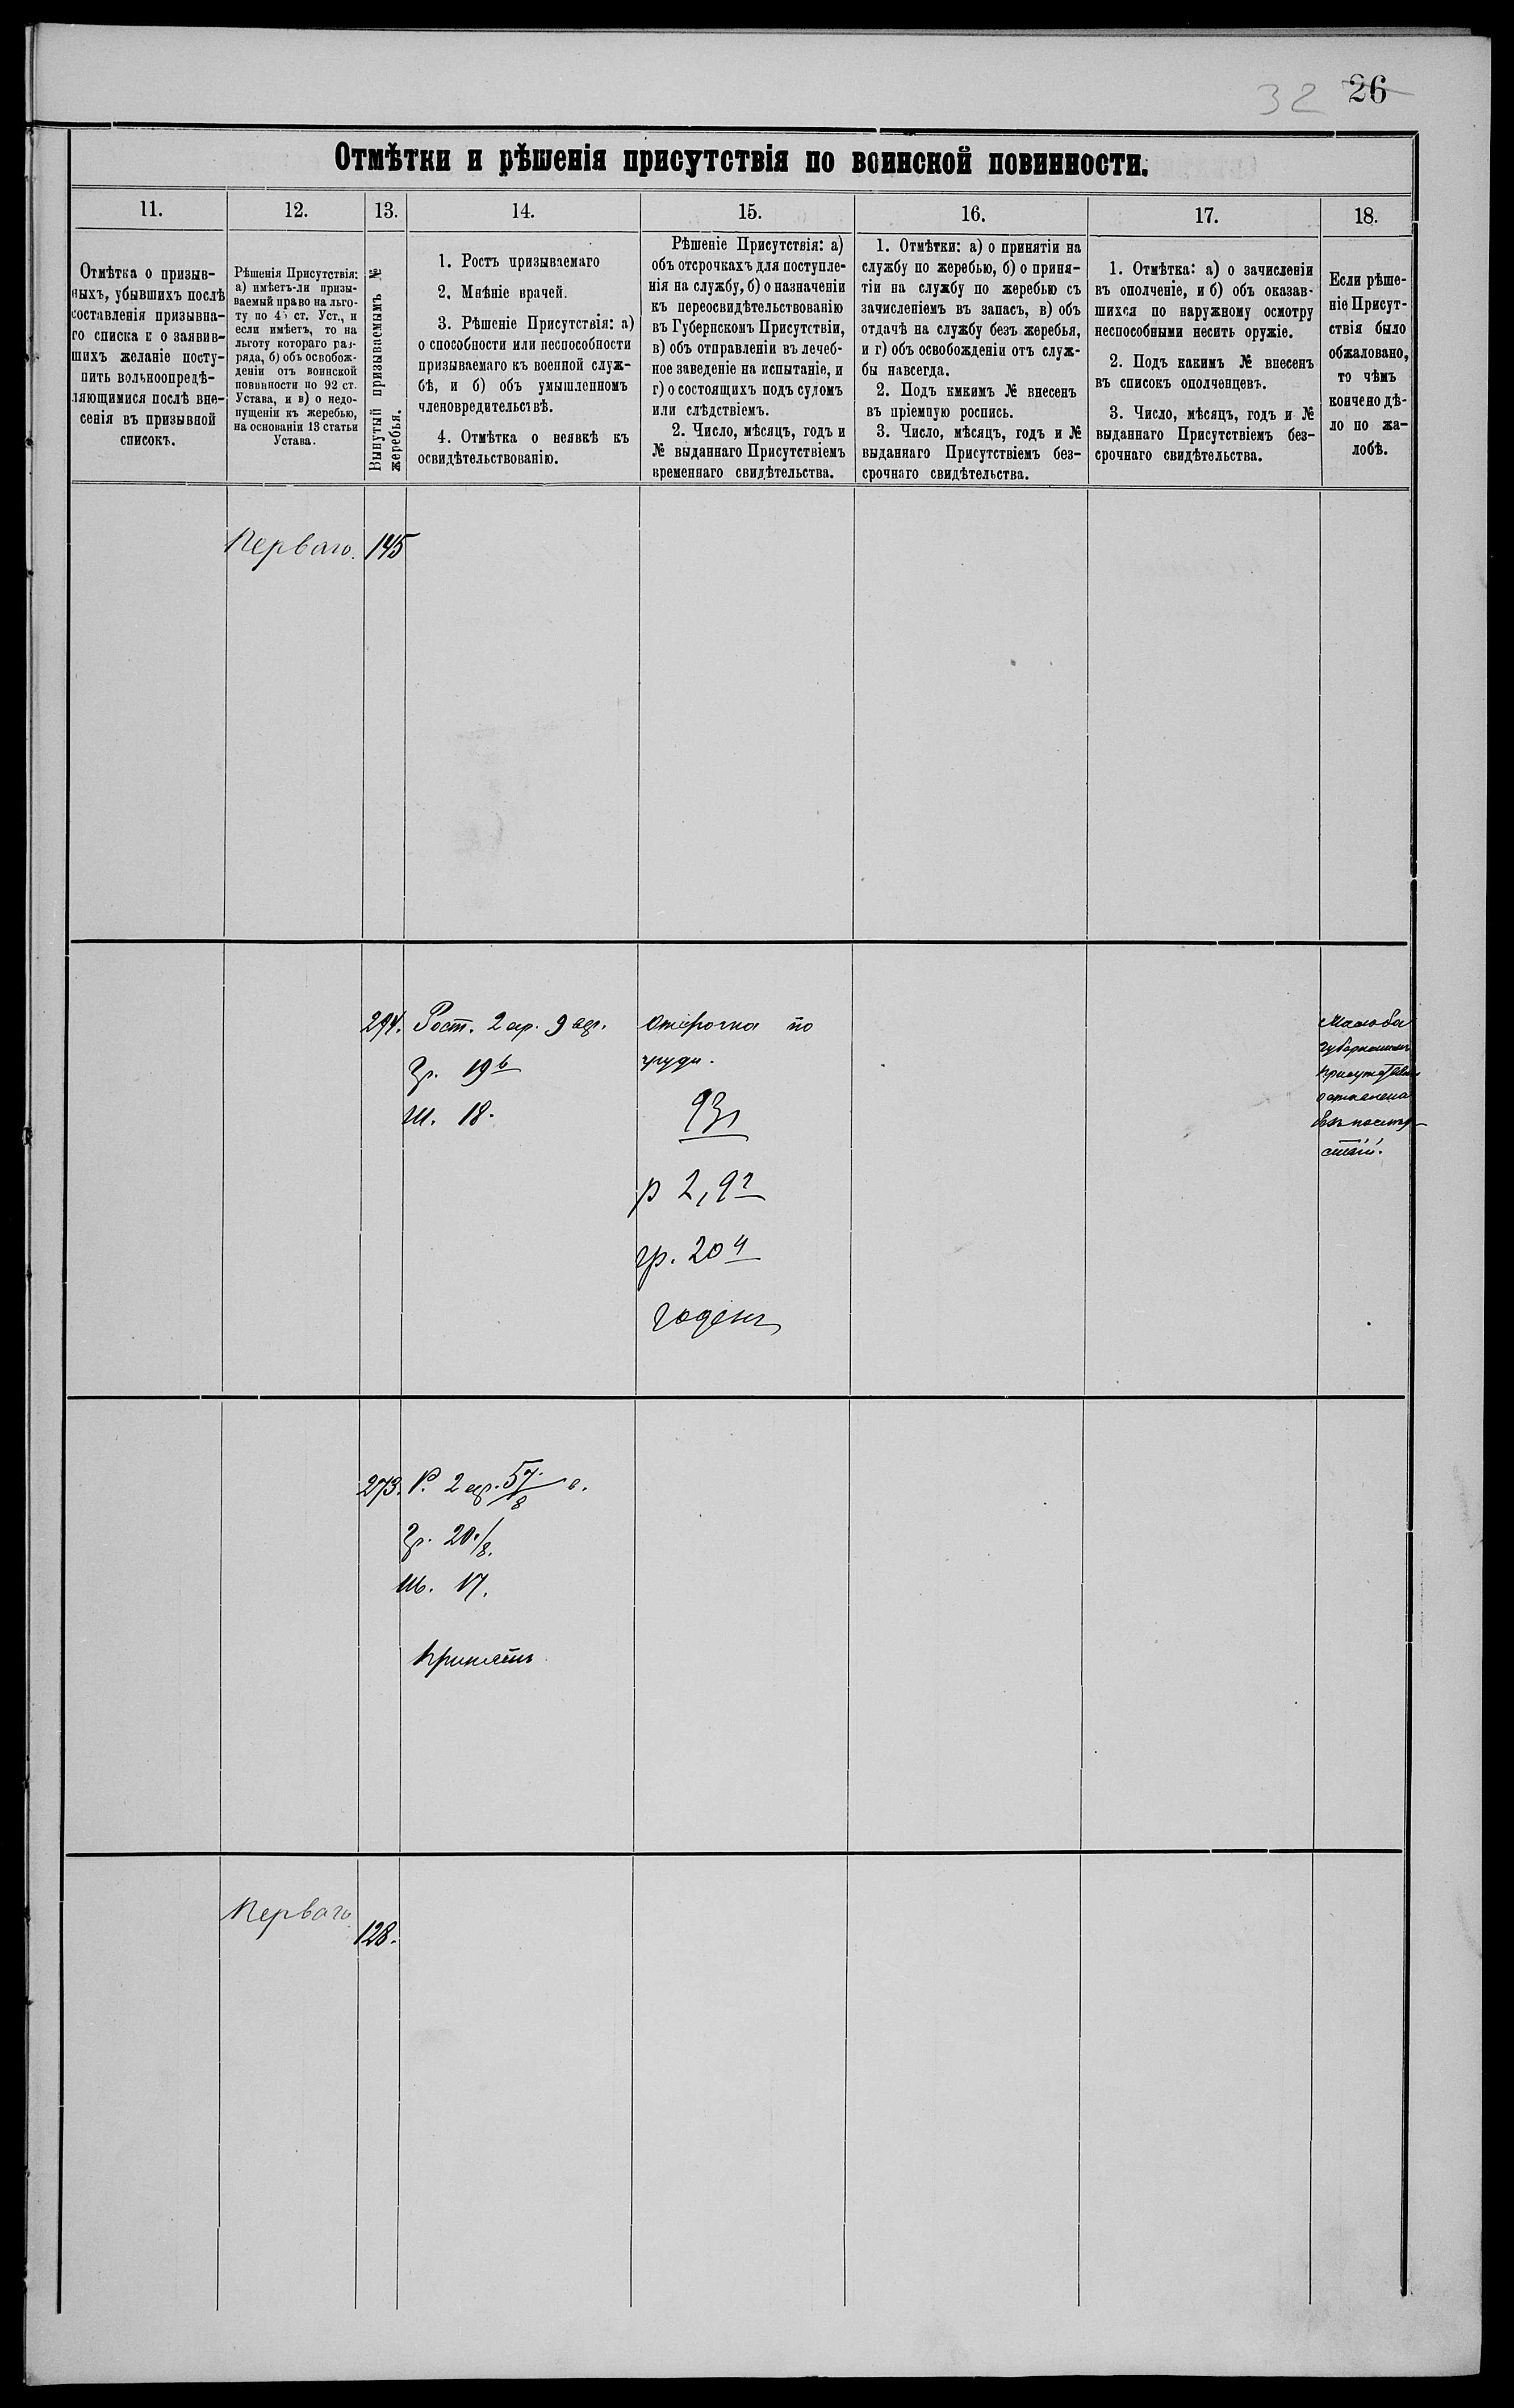 32 26
Отмѣтки и рѣшенія присутствія по воинской повинности.
11.
12.
13.
14.
15.
16.
17.
18.
Отмѣтка о призыв-
ныхъ, убывшихъ послѣ
составленія призывна-
го списка и о заявив-
шихъ желаніе посту-
пить вольноопредѣ-
ляющимися послѣ вне-
сенія въ призывной
списокъ.
Рѣшенія Присутствія:
а) имѣетъ-ли призы-
ваемый право на льго-
ту по 45 ст. Уст., и
если имѣетъ, то на
льготу котораго раз-
ряда, б) объ освобож-
деніи отъ воинской
повинности по 92 ст.
Устава, и в) о недо-
пущеніи къ жеребью,
на основаніи 13 статьи
Устава.
Вынутый призываемымъ №
жеребья.
1. Ростъ призываемаго
2. Мнѣніе врачей.
3. Рѣшеніе Присутствія: а)
о способности или неспособности
призываемаго къ военной служ-
бѣ, и б) объ умышленномъ
членовредительствѣ.
4. Отмѣтка о неявкѣ къ
освидѣтельствованію.
Рѣшеніе Присутствія: а)
объ отсрочкахъ для поступле-
нія на службу, б) о назначеніи
къ переосвидѣтельствованію
въ Губернскомъ Присутствіи,
в) объ отправленіи въ лечеб-
ное заведеніе на испытаніе, и
г) о состоящихъ подъ судомъ
или слѣдствіемъ.
2. Число, мѣсяцъ, годъ и
№ выданнаго Присутствіемъ
временнаго свидѣтельства.
1. Отмѣтки: а) о принятіи на
службу по жеребью, б) о приня-
тіи на службу по жеребью съ
зачисленіемъ въ запасъ, в) объ
отдачѣ на службу безъ жеребья,
и г) объ освобожденіи отъ служ-
бы навсегда.
2. Подъ кмкимъ № внесенъ
въ пріемную роспись.
3. Число, мѣсяцъ, годъ и №
выданнаго Присутствіемъ без-
срочнаго свидѣтельства.
1. Отмѣтка: а) о зачисленіи
въ ополченіе, и б) объ оказав-
шихся по наружному осмотру
неспособными несить оружіе.
2. Подъ какимъ № внесенъ
въ списокъ ополченцевъ.
3. Число, мѣсяцъ, годъ и №
выданнаго Присутствіемъ без-
срочнаго свидѣтельства.
Если рѣше-
ніе Присут-
ствія было
обжаловано,
то чѣмъ
кончено дѣ-
ло по жа-
лобѣ.
Перваго. 145
294. Рост. 2 ар. 9 вер.
Гр. 19 6
Ш. 18.
Отсрочка по
груди.
93
р 2, 9 2
гр. 20 4
годенъ
Жалоба
Губернскимъ
Присутствіемъ
оставлена
273. Р. 2 ар. 5 7/8 в.
Гр. 20 1/8.
Ш. 17.
Принятъ
Перваго
128.